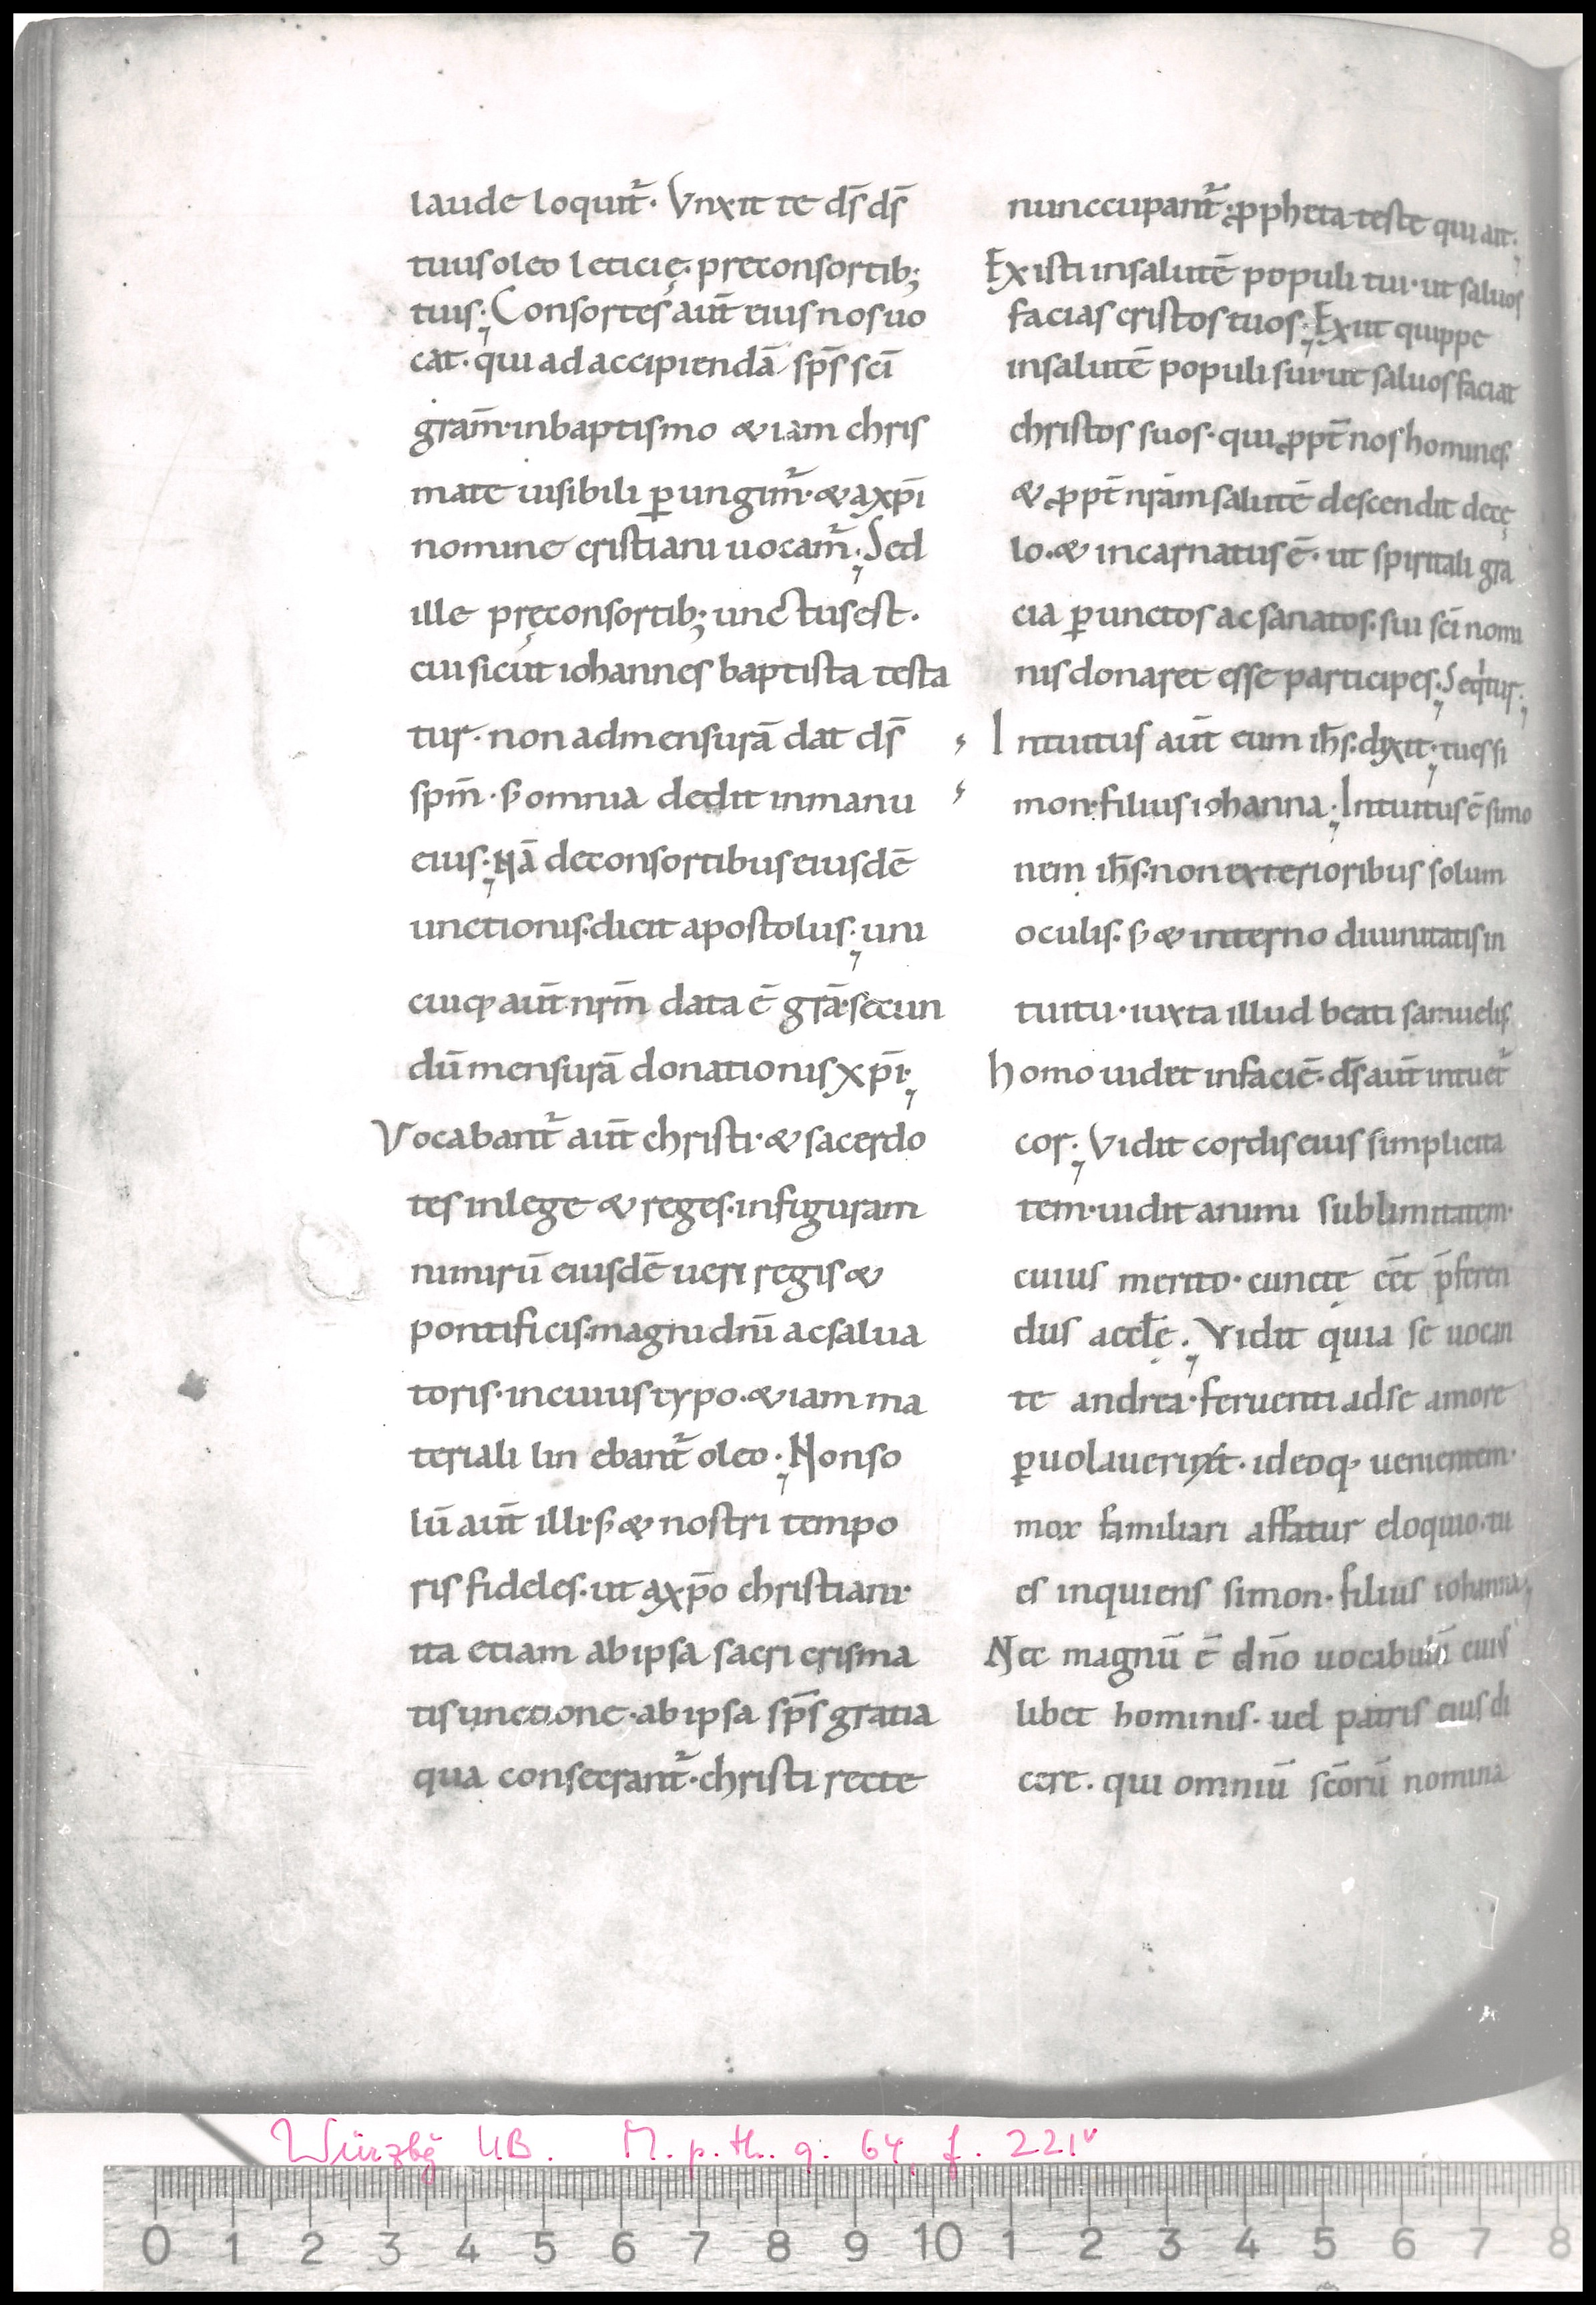 laude loquit᷑· Vnxit te ds̄ ds̄
tuus oleo leticię· preconsortib;
tuis· Consortes aut̄ eius nos uo
cat· qui ad accipiendā sp̄s sc̄i
gram̄· in baptismo & iam chris
mate uisibili ꝑungim᷑· & a xp̄i
nomine cristiani uocam᷑· Sed
ille pręconsortib; unctus est·
cui sicut iohannes baptista testa
tur· non ad mensurā dat ds̄
spm̄· s; omnia dedit in manu
eius· Nā de consortibus eiusdē
unctionis· dicit apostolus· uni
cuiq; aut̄ nrm̄ data ē grā· secun
dū mensurā donationis xp̄i·
Vocabant᷑ aut̄ christi· & sacerdo
tes in lege & reges· in figuram
nimirū eiusdē ueri regis &
pontificis· magni dn̄i ac salua
toris· in cuius typo· & iam ma
teriali lin ebant᷑ oleo· Non so
lū aut̄ illi· s; & nostri tempo
ris fideles· ut a xp̄o christiani·
ita etiam ab ipsa sacri crisma
tis unctione· ab ipsa sp̄s gratia
qua consecrant᷑· christi recte
nunccupant᷑· ꝓpheta teste qui ait·
Existi in salutē populi tui· ut saluos
facias cristos tuos· Exiit quippe
in salutē populi sui· ut saluos faciat
christos suos· qui ꝓpt̄ nos homines·
& ꝓpt̄ nrām salutē descendit de cę
lo· & incarnatus ē· ut spiritali gra
cia ꝑunctos ac sanatos· sui sc̄i nomi
nis donaret esse participes· Seqitur·
Intuitus aut̄ eum ih̄s· dixit· tu es si
mon· filius iohanna· Intuitus ē simo
nem ih̄s· non exterioribus solum
oculis· s; & interno diuinitatis in
tuitu· iuxta illud beati samuelis
homo uidet in faciē· ds̄ aut̄ intuet᷑
cor· Vidit cordis eius simplicita
tem· uidit animi sublimitatem·
cuius merito· cunctę eēt p̄feren
dus accłę· Vidit quia se uocan
te andrea· feruenti ad se amore
ꝑuolauerit· ideoq; uenientem·
mox familiari affatur eloquio· tu
es inquiens simon· filius iohanna·
Nec magnū ē dn̄o uocabulū cuius
libet hominis· uel patris eius di
cere· qui omniū sc̄orū nomina
Würzbg UB. M. p. th. q. 64, f. 221v
0 1 2 3 4 5 6 7 8 9 10 1 2 3 4 5 6 7 8